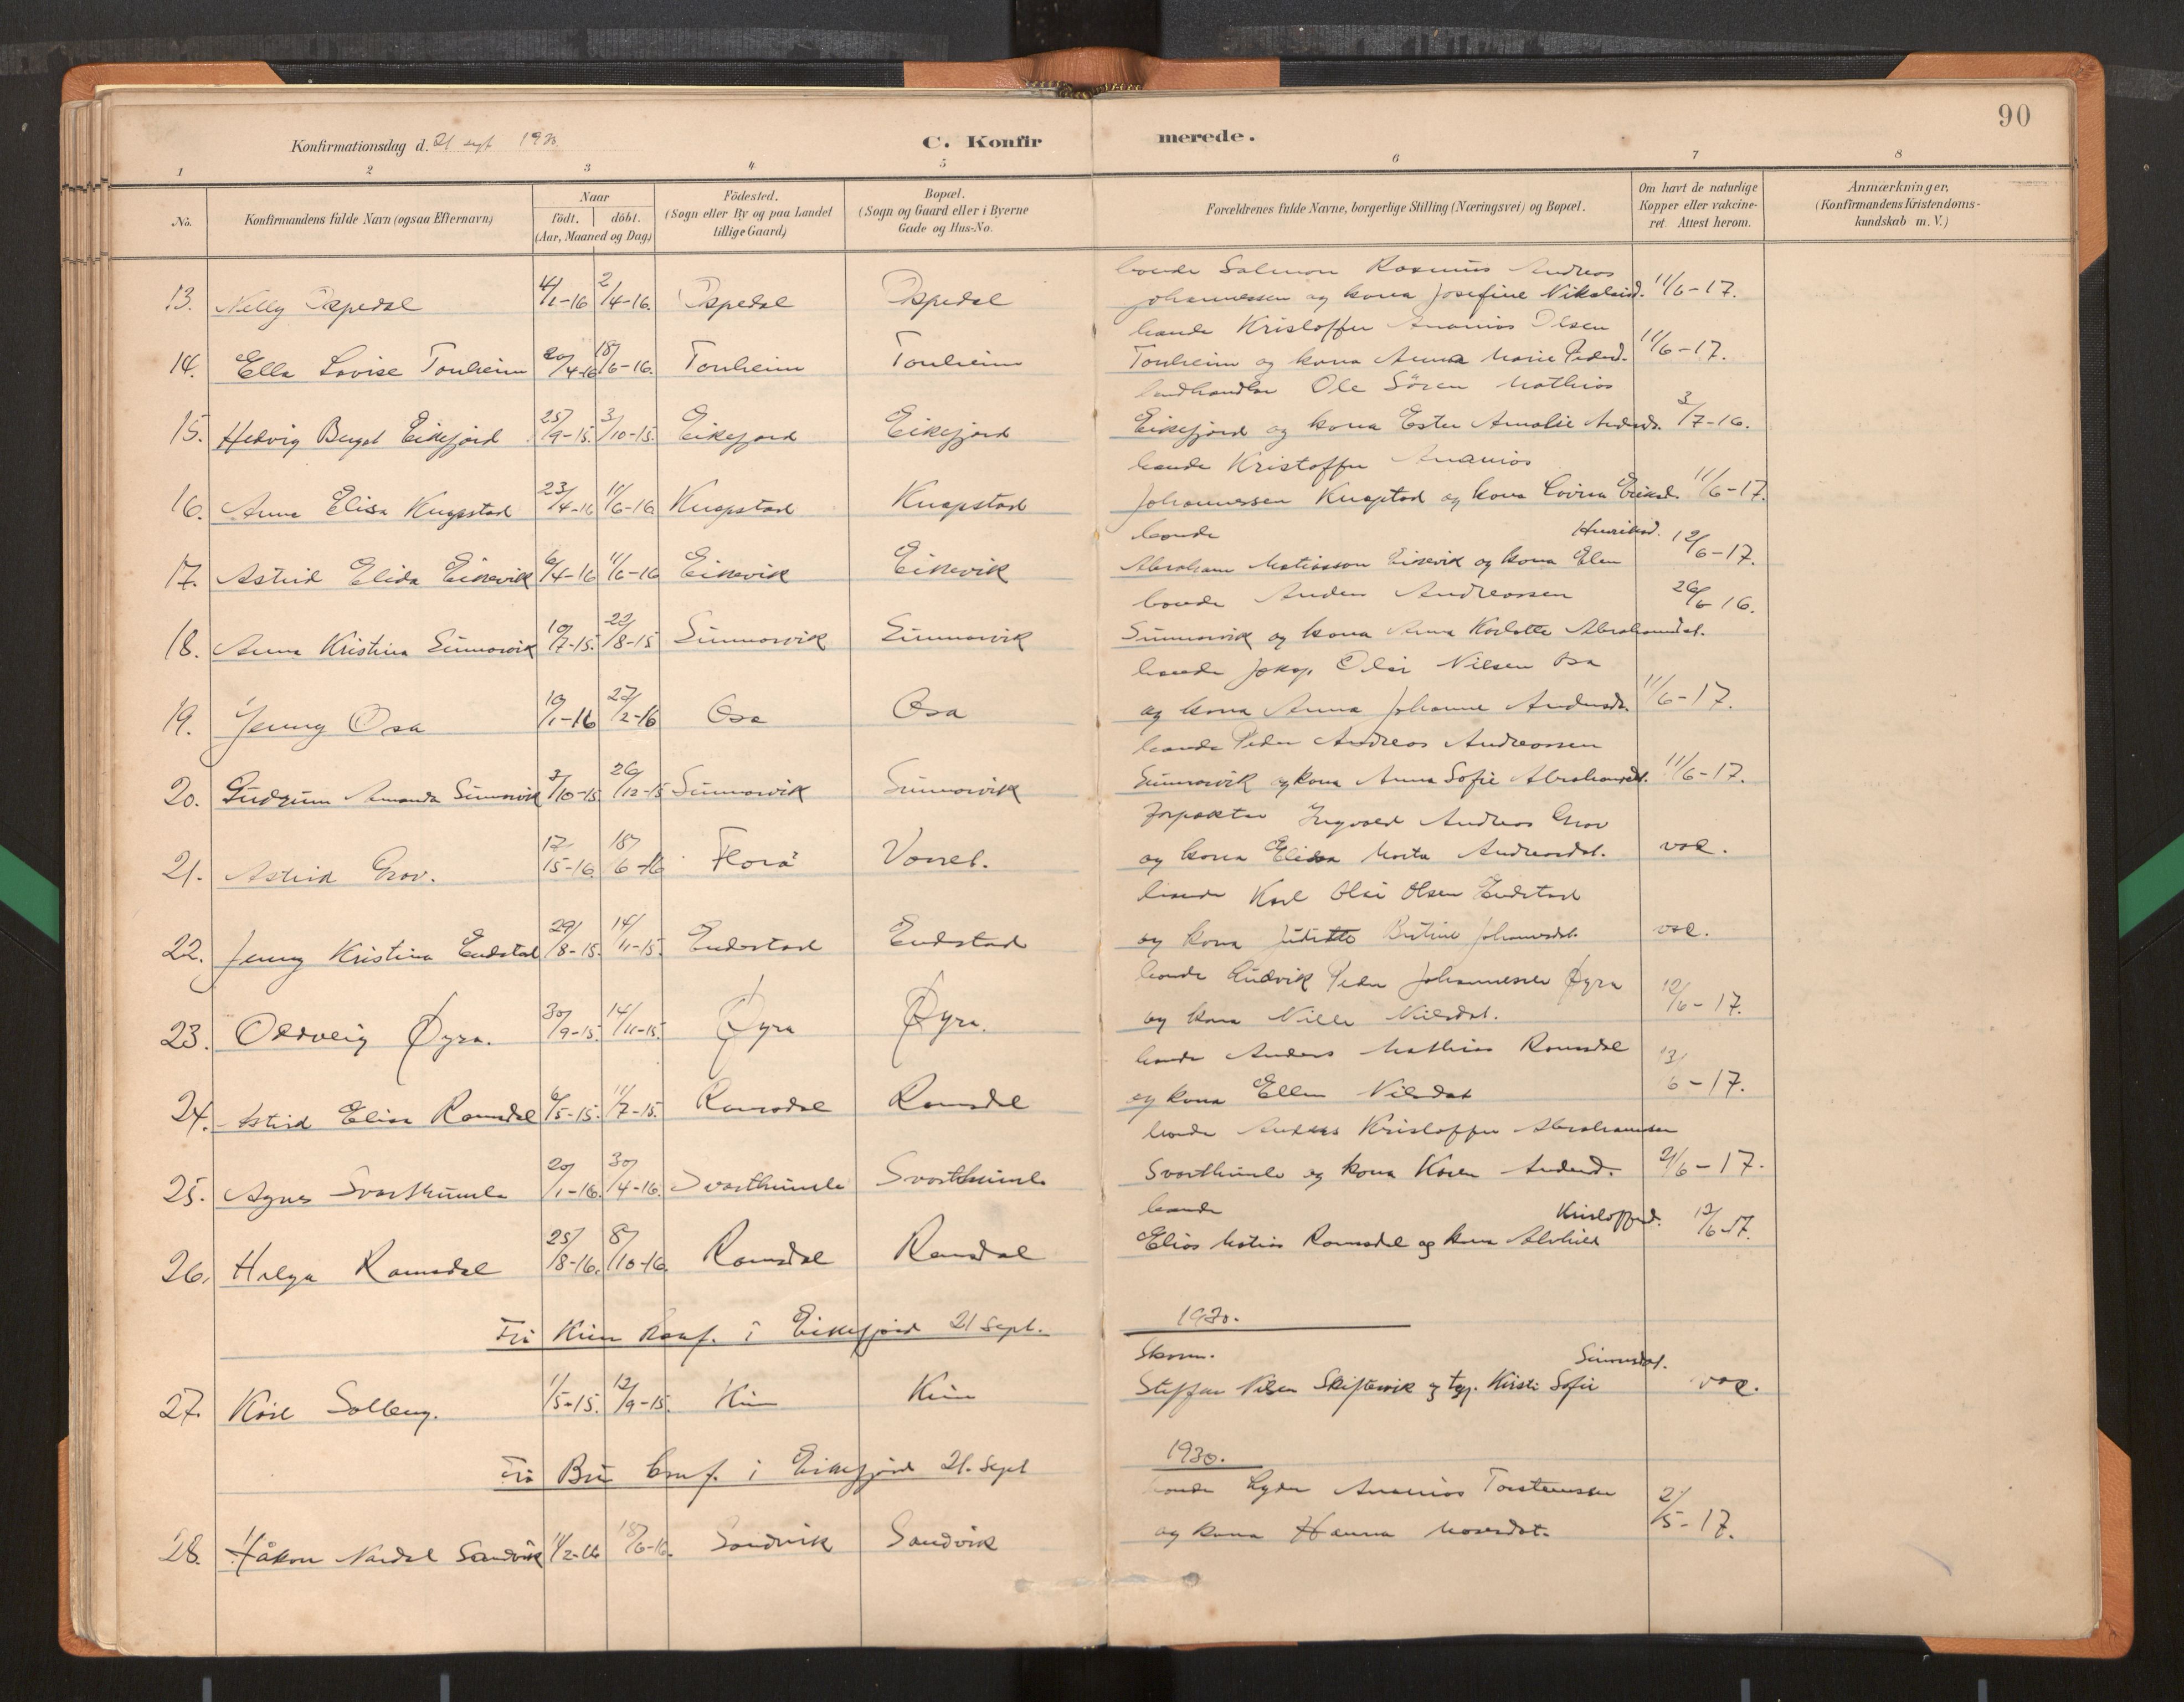 90
Konfirmationsdag d. 21 sept 1930.
C. Konfirmerede.
1 2 3 4 5 6 7 8
No.
Konfirmandens fulde Navn (ogsaa Efternavn)
Naar
födt. döbt.
(Aar, Maaned og Dag)
Födested.
(Sogn eller By og paa Landet
tillige Gaard)
Bopæl.
(Sogn og Gaard eller i Byerne
Gade og Hus-No.
Forældrenes fulde Navne, borgerlige Stilling (Næringsvei) og Bopæl.
Om havt de naturlige
Kopper eller vakcine-
ret. Attest herom.
Anmærkninger,
(Konfirmandens Kristendoms-
kundskab m. V.)
bonde Salmon Rasmus Andreas
13. Nelly Espedal 4/1-16 2/4-16. Espedal Espedal Johannessen og kona Josefine Nikolaid. 11/6-17.
bonde Kristoffer Ananias Olsen
14. Ella Lovise Tonheim 20/4-16 18/6-16. Tonheim Tonheim Tonheim og kona Anna Marie Pedersd. 11/6-17.
landhandler Ole Sören Mathias
15. Hedvig Bergot Eikefjord 25/9-15. 3/10-15. Eikefjord Eikefjord Eikefjord og kona Ester Amalie Andersd. 3/7-16.
bonde Kristoffer Ananias
16. Anna Elisa Knapstad 23/4-16 11/6-16 Knapstad Knapstad Johannessen Knapstad og kona Lovina Eriksd. 11/6-17.
bonde Henriksd.
17. Astrid Elida Eikevik 6/4-16 11/6-16 Eikevik Eikevik Abraham Matiasson Eikevik og kona Elen 12/6-17.
bonde Anders Andreassen
18. Anna Kristina Sunnarvik 10/7-15. 22/8-15 Sunnarvik Sunnarvik Sunnarvik og kona Anna Karlotte Abrahamsdt. 26/6 16.
bonde Jakop Olai Nilsen Osa
19. Jenny Osa 19/1-16 27/2-16 Osa Osa og kona Anna Johanne Andersdt. 11/6-17.
bonde Peder Andreas Andreassen
20. Gudrunn Amanda Sunnarvik 3/10-15 26/12-15 Sunnarvik Sunnarvik Sunnarvik og kona Anna Sofie Abrahamsdt. 11/6-17.
forpakter Ingvald Andreas Grov
21. Astrid Grov. 12/5-16. 18/6-16 Florø Vonnel. og kona Elisa Marta Andreasdt. vac.
bonde Karl Olai Olsen Endestad
22. Jenny Kristina Endestad 29/8-15. 14/11-15. Endestad Endestad og kona Juditte Bertine Johannesdt. vac.
bonde Ludvik Peder Johannessen Øyra
23. Oddveig Øyra. 30/9-15. 14/11-15. Øyra Øyra. og kona Nille Nilsdt. 12/6-17.
bonde Anders Mathias Ramsdal
24. Astrid Elisa Ramsdal 6/5-15. 11/7-15. Ramsdal Ramsdal og kona Ellen Nilsdat 13/6-17.
bonde Anders Kristoffer Abrahamsen
25. Agnes Svarthumle 20/1-16. 30/4-16. Svarthumle Svarthumle Svarthumle og kona Karen Andersd. 21/6-17.
bonde Kristoffersd.
26. Helga Ramsdal 25/8-16. 8/10-16. Ramsdal Ramsdal Elias Matias Ramsdal og kona Alvhild 12/6-17.
Frå Kinn konf. i Eikefjord 21 Sept. 1930.
Skom. Simonsdat.
27. Karl Solberg. 1/5-15. 12/9-15. Kinn Kinn Steffen Nilsen Skiftesvik og tgp. Kirsti Sofie vac.
Frå Bru konf. i Eikefjord 21. Sept 1930.
bonde Lyder Ananias Torstensen
28. Håkon Nardal Sandvik 11/2-16 18/6-16. Sandvik Sandvik og kona Hanna Mosesdat. 2/5-17.